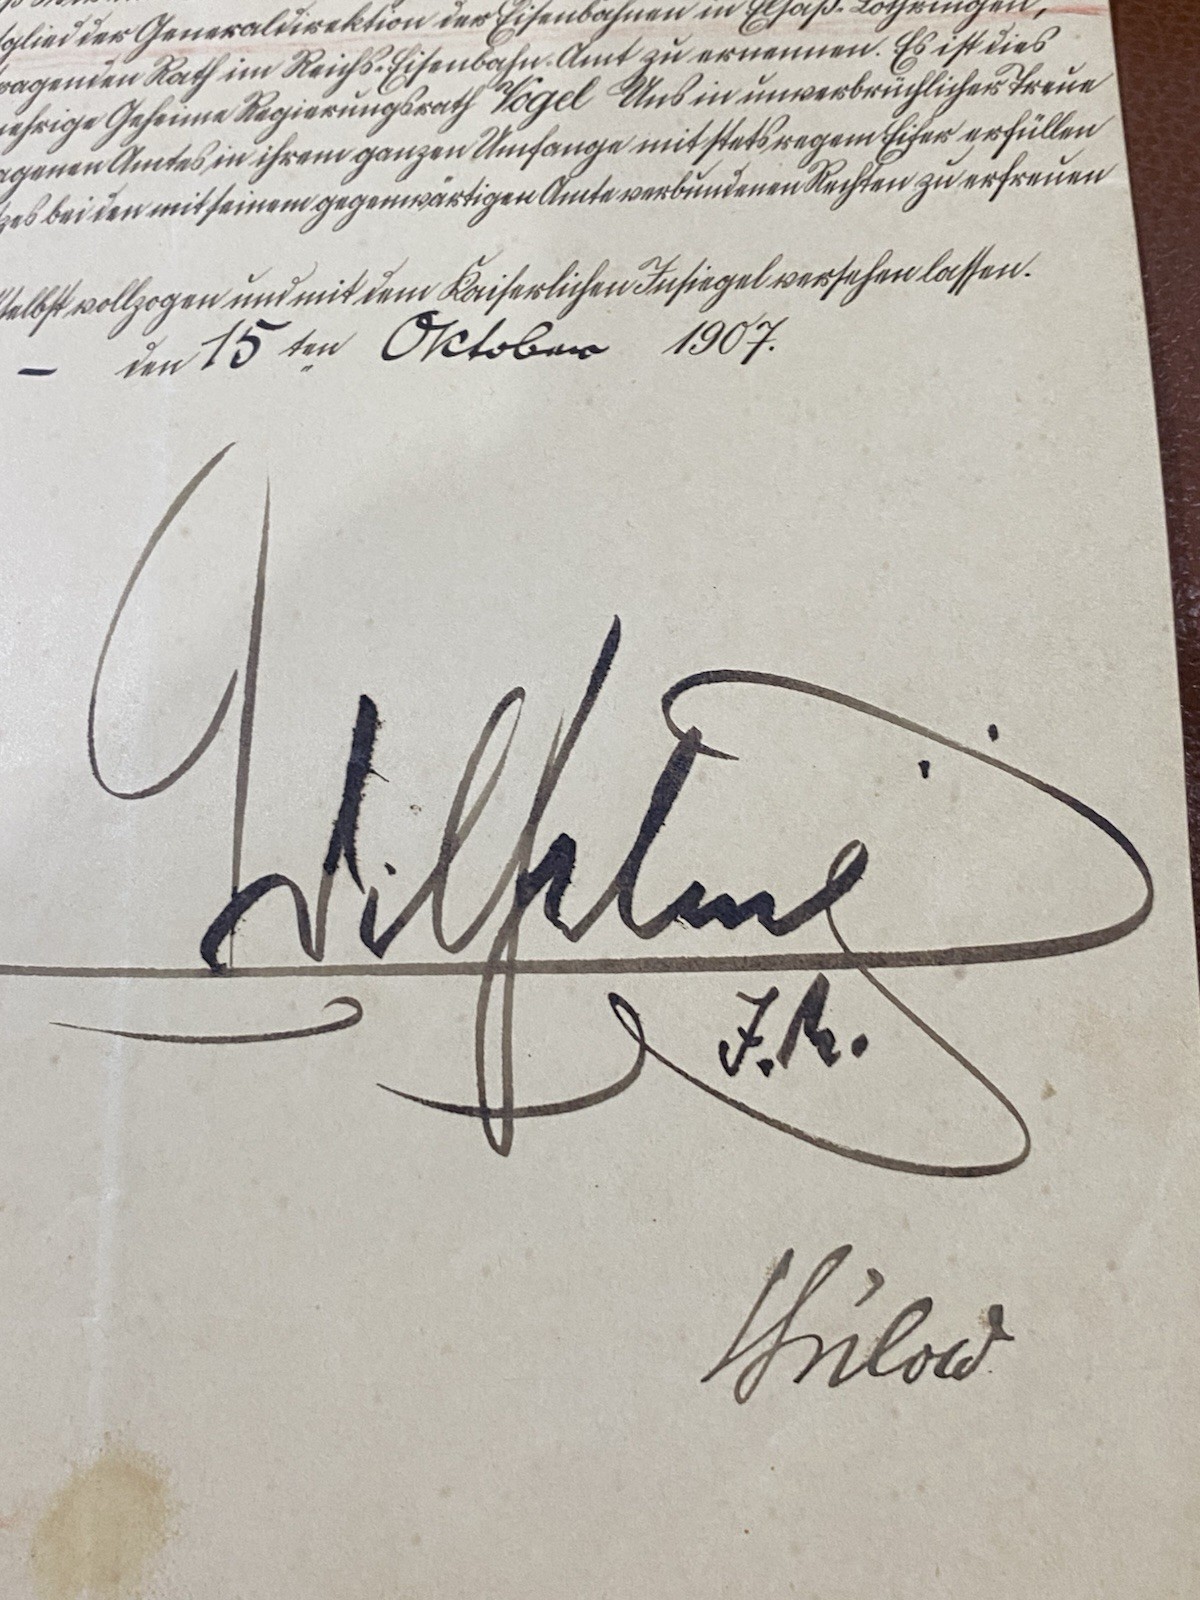 glied der Generaldirektion der Eisenbahnen in Elsaß-Lothringen,
ragenden Rath im Reichs-Eisenbahn-Amt zu ernennen. Es ist dies
mehrige Geheime Regierungsrath Vogel Uns in unverbrüchlicher Treue
agenen Amtes in ihrem ganzen Umfange mit stets regem Eifer erfüllen
zes bei den mit seinem gegenwärtigen Amte verbundenen Rechten zu erfreuen
selbst vollzogen und mit dem Kaiserlichen Insiegel versehen lassen.
– den 15 ten Oktober 1907.
Wilhelm
I.R.
Bülow